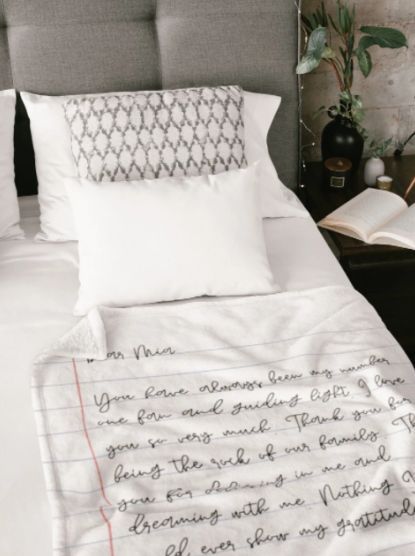 Dear Mia
You have always been my number
one fan and guiding light. I love
you so very much. Thank you
being the rock of our family.
you for in me and
dreaming with me. Nothing
ever show my gratitude